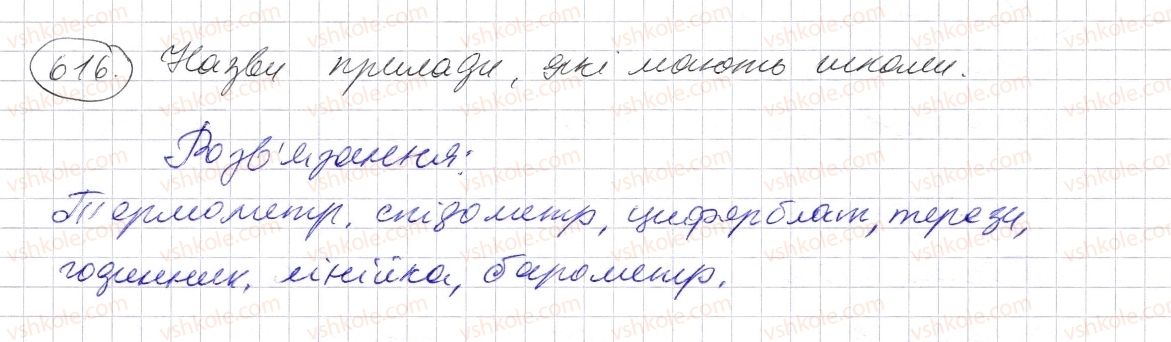 616. Назви прилади, які мають шкали.
Розв'язання:
Термометр, спідометр, циферблат, терези,
годинник, лінійка, барометр.